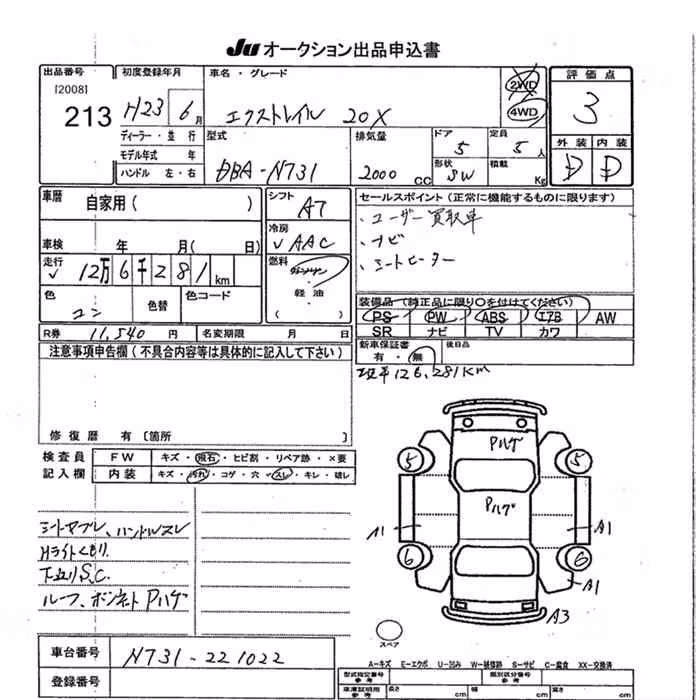 JU オークション出品申込書
出品番号 初度登録年月 車名・グレード 評価点
[2008]
213 H23 6月 エクストレイル 20X 2WD 4WD 3
ディーラー・並行 型式 排気量 ドア 定員 外装 内装
モデル年式 年 5 5人 D D
ハンドル 左・右 DBA-N731 2000cc 形状 SW 積載 Kg
車歴 自家用( ) シフト AT セールスポイント(正常に機能するものに限ります)
・ユーザー買取車
冷房 ✓AAC ・ナビ
車検 年 月( 日) ・シートヒーター
走行 ✓ 12万6千281km 燃料 ガソリン
軽油・
( )
色 コン 色替 色コード 装備品(純正品に限り○を付けてください)
PS PW ABS エアB AW
R券 11,540円 名変期限 月 日 SR ナビ TV カワ
注意事項申告欄(不具合内容等は具体的に記入して下さい) 新車保証書 後日品
有・無
現車126,281Km
修復歴 有〔箇所 〕
検査員 FW キズ・飛石・ヒビ割・リペア跡・×要
記入欄 内装 キズ・汚れ・コゲ・穴・スレ・キレ・破レ
Pハゲ
5 5
Pハゲ
A1 A1
6 6
A1
A3
スペア
シートヤブレ、ハンドルスレ
Hライトくもり
下廻りS.C.
ルーフ、ボンネットPハゲ
A-キズ E-エクボ U-凹み W-補修跡 S-サビ C-腐食 XX-交換済
車台番号 N731-221022
登録番号
型式指定番号 参考 類別区分番号 参考
車庫証明用 参考 長さ cm 幅 cm 高さ cm